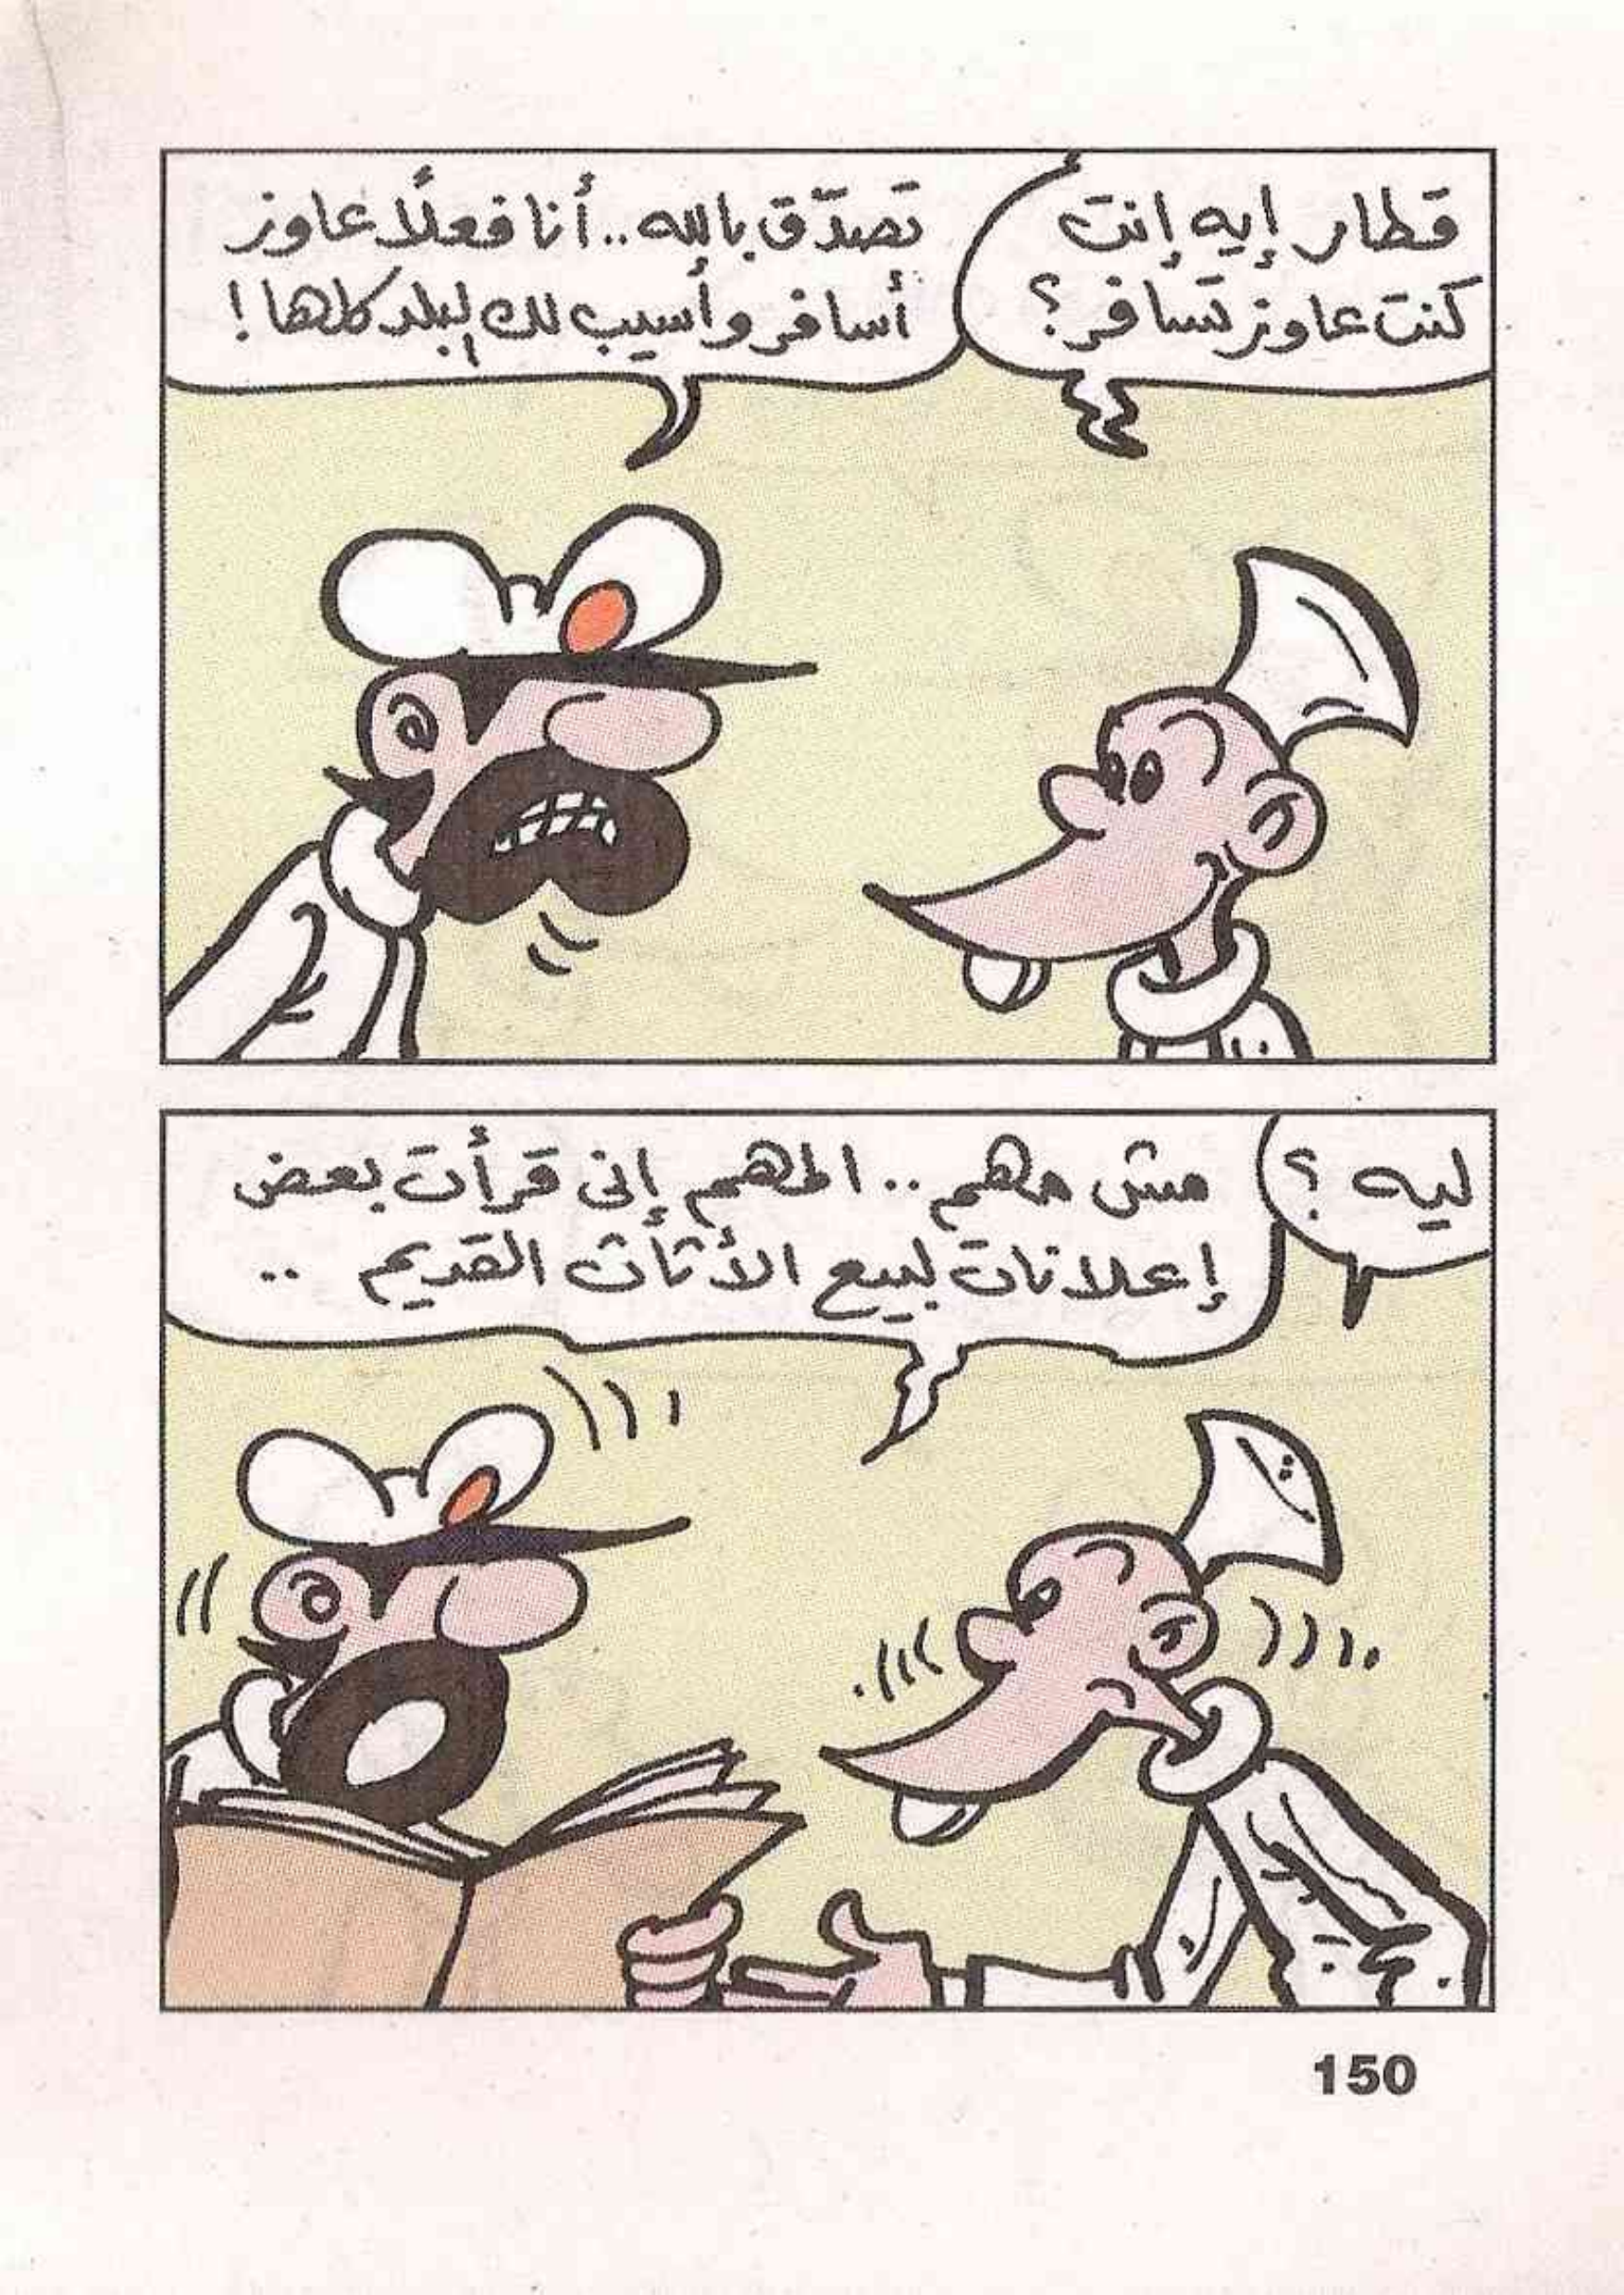 قطار إيه إنت
كنت عاوز تسافر؟
تصدّق بالله.. أنا فعلًا عاوز
أسافر وأسيب لك البلد كلها!
ليه؟
مش مهم.. المهم إنى قرأت بعض
إعلانات لبيع الأثاث القديم ..
150